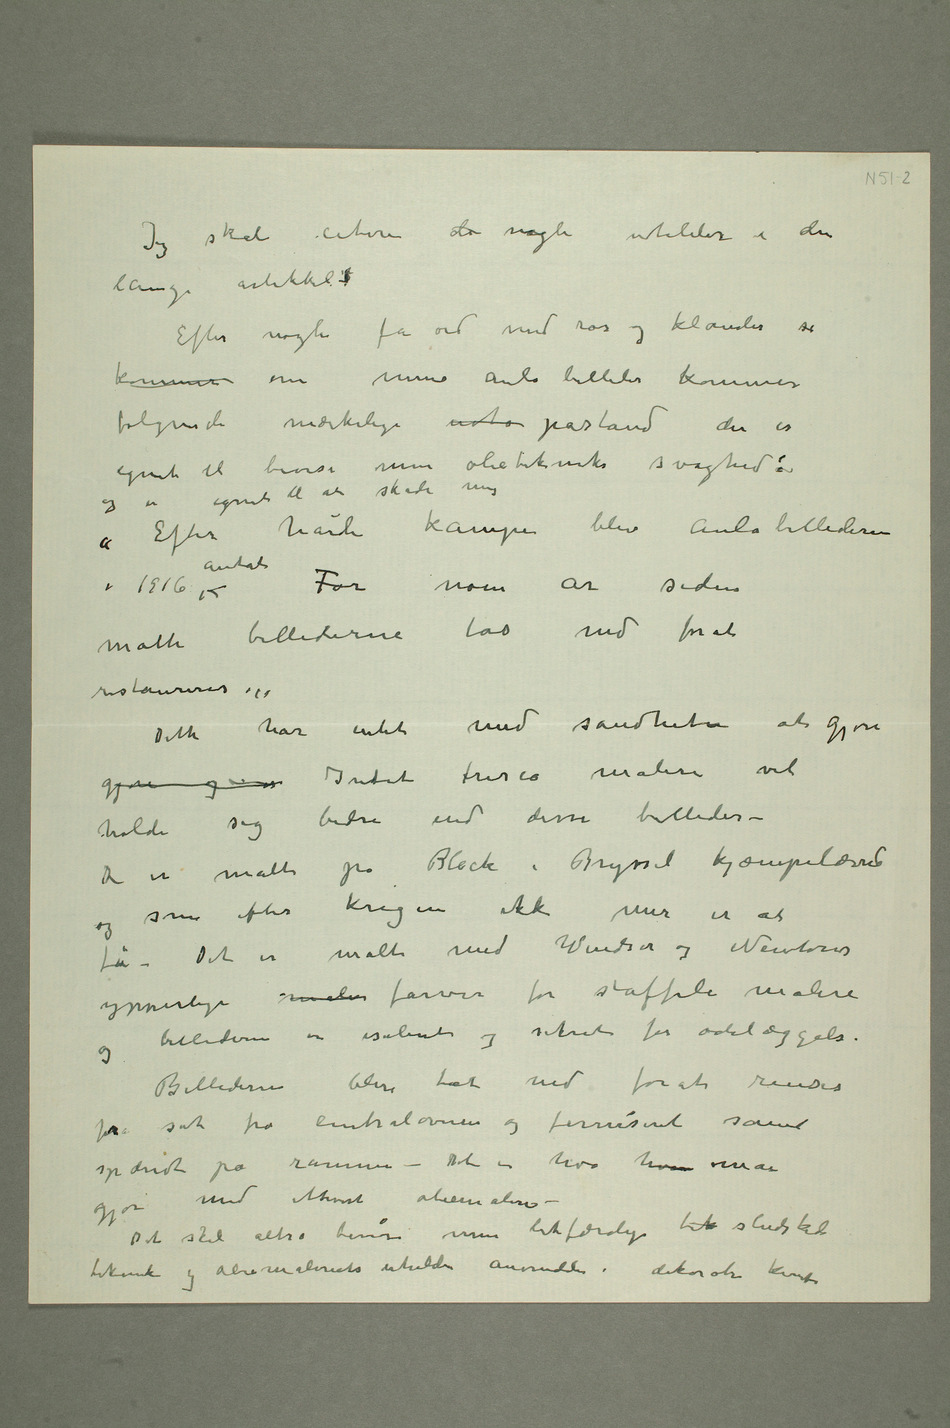 N 51-2
Jeg skal citere de nogle utalelser i den
lange artikkel:
Efter nogle få ord med ros og klander se
kommer om mine aula billeder kommer
følgende mærkelige noto påstand der er
egnet til bevise min olietekniks svaghed:
og er egnet til at skade mig
Efter hårde kampe blev aulabillederne
antat
i 1916 For noen år siden
måtte billederne taes ned forat
restaureres
Dette har intet med sandheten at gjøre
gjøre og Intet fresco maleri vil
holde sig bedre end disse billeder –
De er malt på Block i Bryssel kjæmpelærred
og som efter krigen ikke mer er at
få – Det er malt med Windsor og Newtons
ypperlige maler farver for staffeli maleri
og billederne er isoleret og sikret for ødelæggelse.
Billederne blev tat ned forat renses
for sot fra centralovnen og fernisert samt
spændt på rammen – Det er hva hvem man
gjør med ethvert oliemaleri –
Det skal altså bevise min letfærdige tek sludskal
teknik og oliemaleriets uheldige anvendelse i dekorativ kunst